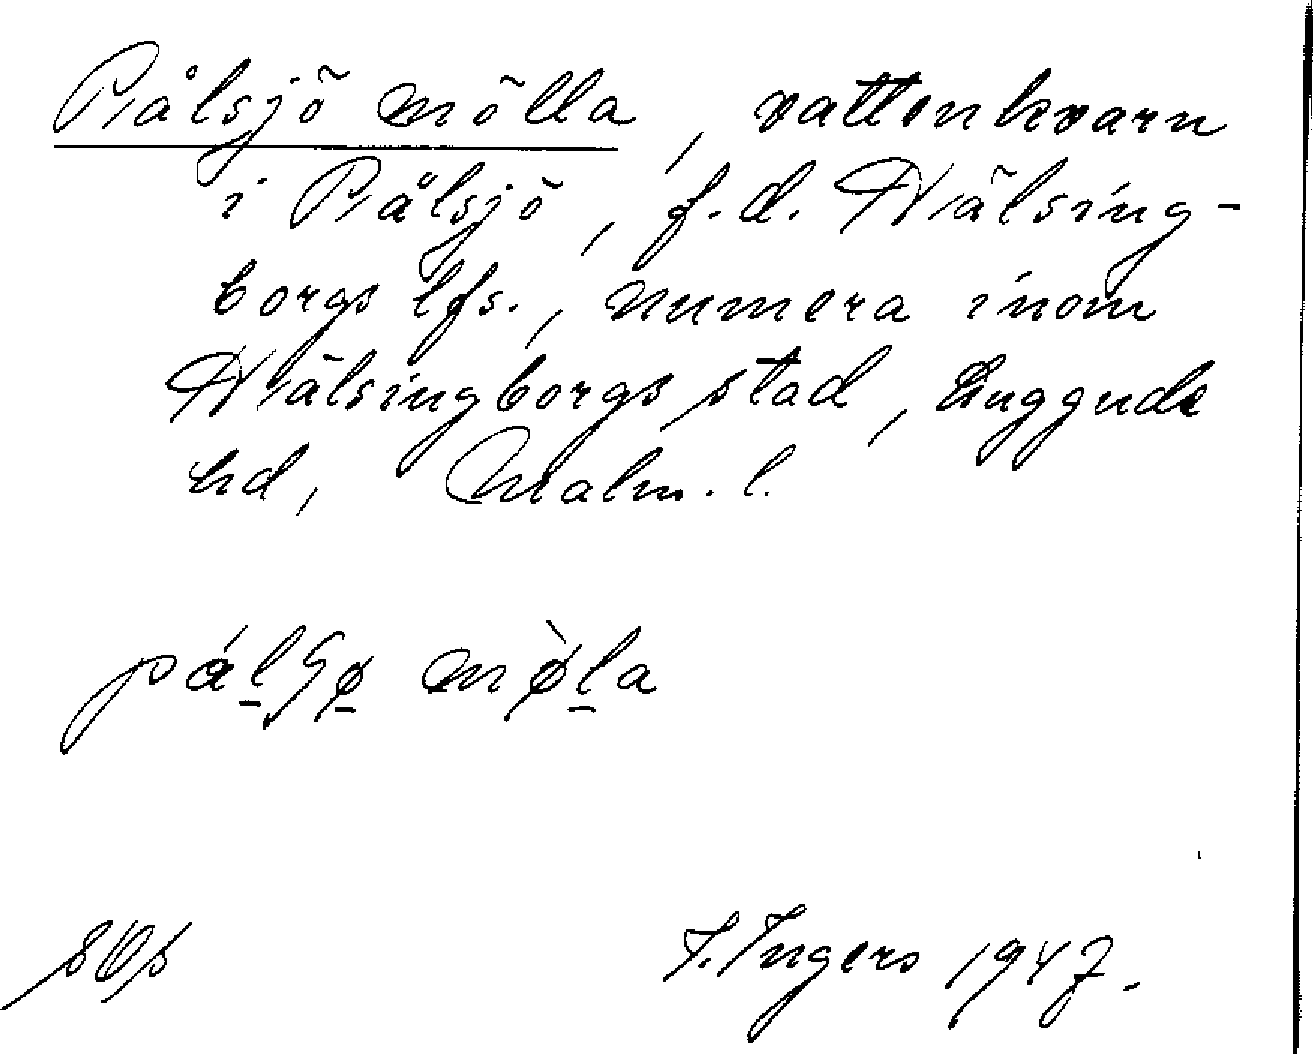 Pålsjö mölla, vattenkvarn
i Pålsjö, f.d. Hälsing-
borgs lfs., numera inom
Hälsingborgs stad, Luggude
hd, Malm. l.
I. Ingers 1947.